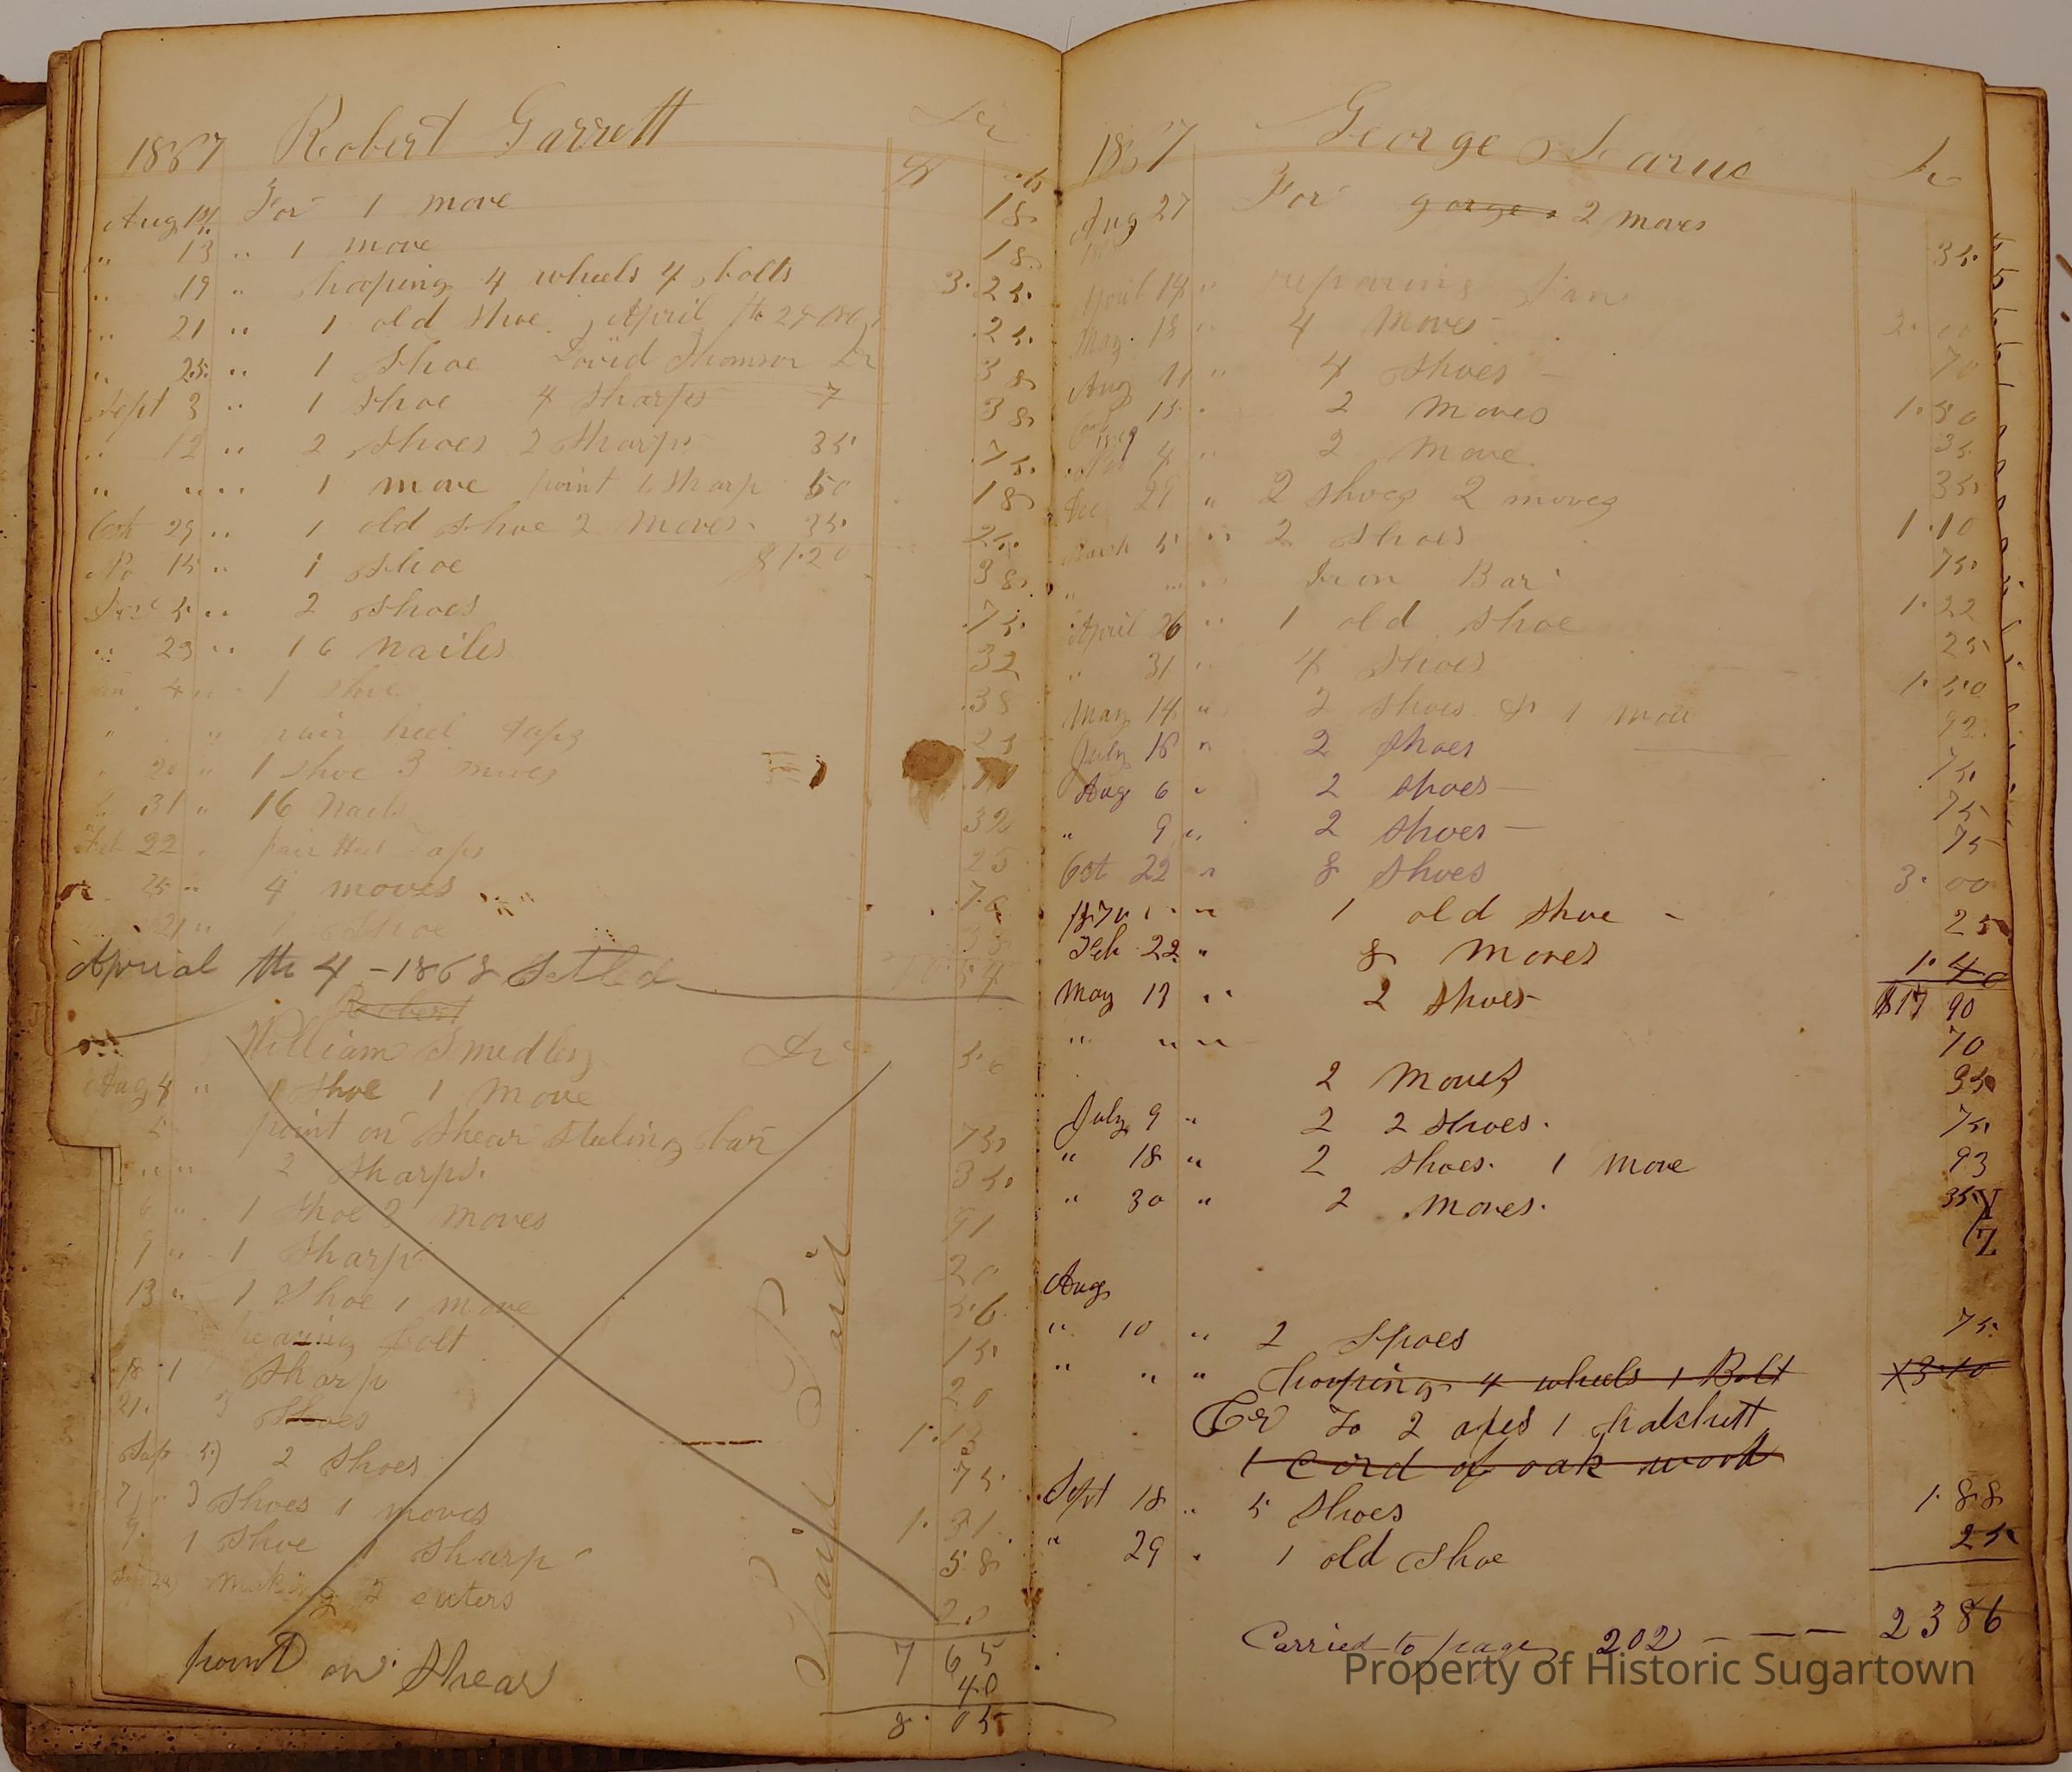 1867 Robert Garrett Dr
Aug For 1 move 18
" 13 " 1 move 18
" 19 " hooping 4 wheels 4 bolts 3.25
" 21 " 1 old shoe April th 29 25
" 25 " 1 shoe David Thomson Dr 38
Sept 3 " 1 shoe 4 sharps 7 38
" 12 " 2 shoes 2 sharps 35 .75
" " " 1 move point 1 sharp 50 18
Oct 29 " 1 old shoe 2 moves 35 25
No 15 " 1 shoe $1.20 38
5 " 2 shoes .75
" 23 " 16 nailes 32
4 " 1 shoe .38
" " pair heel taps 25
" 20 " 1 shoe 3 moves
" 31 " 16 nails 32
Feb 22 pair heel taps 25
25 " 4 moves .70
21 " 1 shoe 38
Aprial the 4 - 1868 Setled
Robert
William Smedley Dr
Aug 4 " 1 shoe 1 move 56
5 point on shear steeling bar 75
" " 2 sharps. 35
6 " 1 shoe 3 moves 91
9 " 1 sharp 20
13 " 1 shoe 1 move 56
bolt 15
18 1 sharp 20
21. 3 shoes 1.13
Sep 5 2 shoes 75
7 " 3 shoes 1 moves 1.31
9. 1 shoe 1 sharp 58
making 2 cuters 20
Paid Paid
7 65
point on shear 40
8.05
1867 George Dr
Aug 27 For gorge 2 moves 35
April 14 " reparing 2.00
May 18 " 4 moves 70
Aug 11 " 4 shoes 1.50
15 " 2 moves 35
1869
4 " 2 move 35
Dec 29 " 2 shoes 2 moves 1.10
March 5 " 2 shoes 75
" " " Iron Bar 1.22
April 26 " 1 old shoe 25
" 31 " 4 shoes 1.50
May 14 " 2 shoes & 1 move 92
July 16 " 2 shoes 75
Aug 6 " 2 shoes 75
" 9 " 2 shoes 75
Oct 22 " 8 shoes 3.00
1870 " 1 old shoe 25
Feb 22 " 8 moves 1.40
$17 90
May 17 " 2 shoes 70
" " " 2 moves 35
July 9 " 2 2 shoes. 75
" 18 " 2 shoes. 1 move 93
" 30 " 2 moves. 35
Aug
" 10 " 2 shoes 75
" " " hooping 4 wheels 1 Bolt 3.10
Cr To 2 axes 1 hatchett
1 cord of oak wood
Sept 18 " 5 shoes 1.88
" 29 " 1 old shoe 25
Carried to page 202 23 86
Property of Historic Sugartown